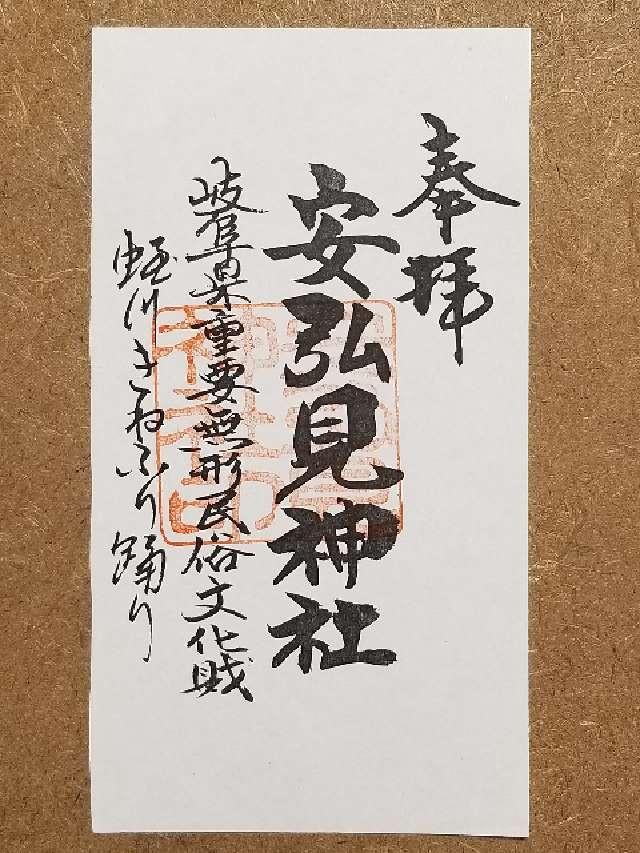 奉拝
安弘見神社
岐阜県重要無形民俗文化財
蛭川きねふり踊り